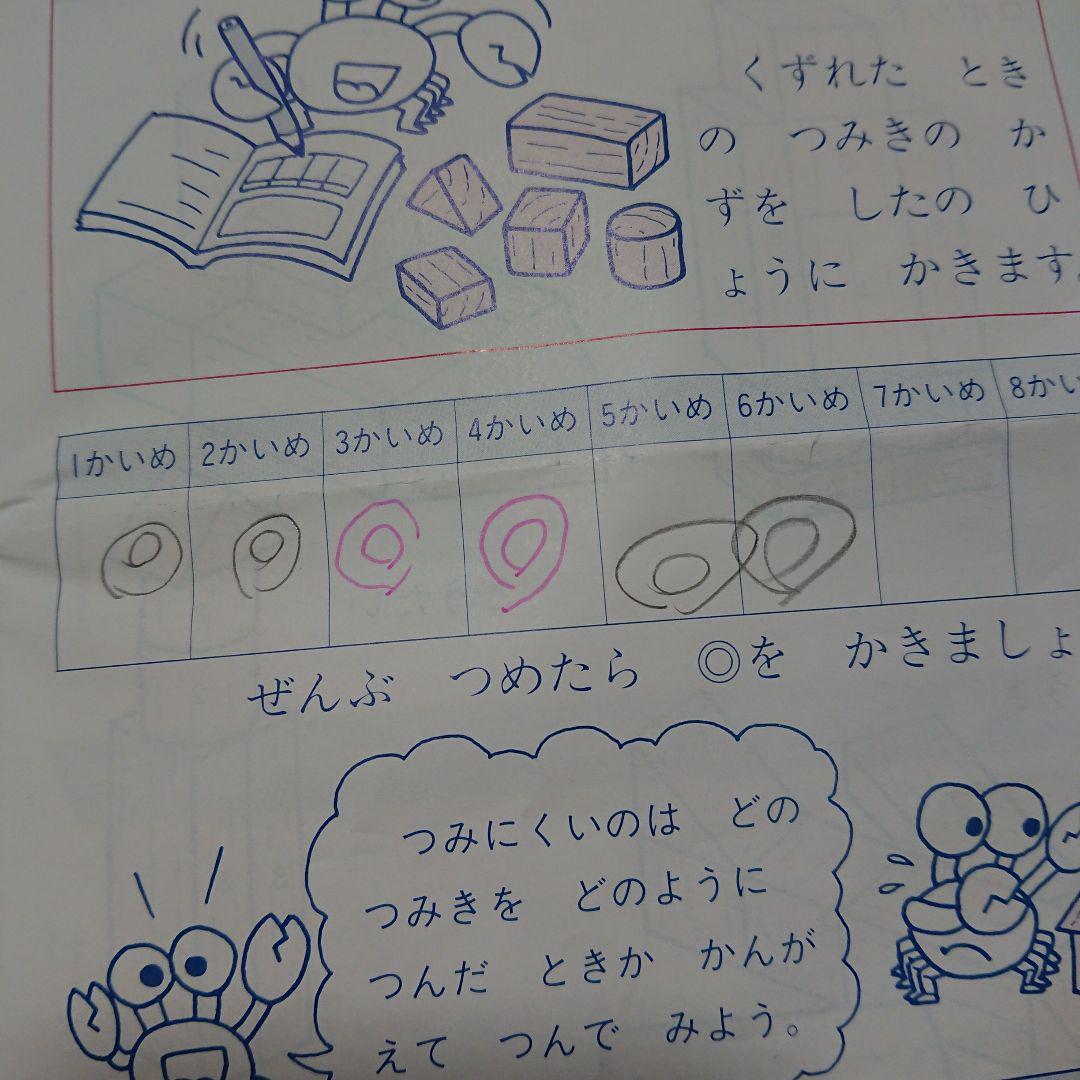 くずれた とき
の つみきの か
ずを したの ひ
ょうに かきます。
1かいめ 2かいめ 3かいめ 4かいめ 5かいめ 6かいめ 7かいめ 8かい
◎ ◎ ◎ ◎ ◎ ◎
ぜんぶ つめたら ◎を かきましょ
つみにくいのは どの
つみきを どのように
つんだ ときか かんが
えて つんで みよう。